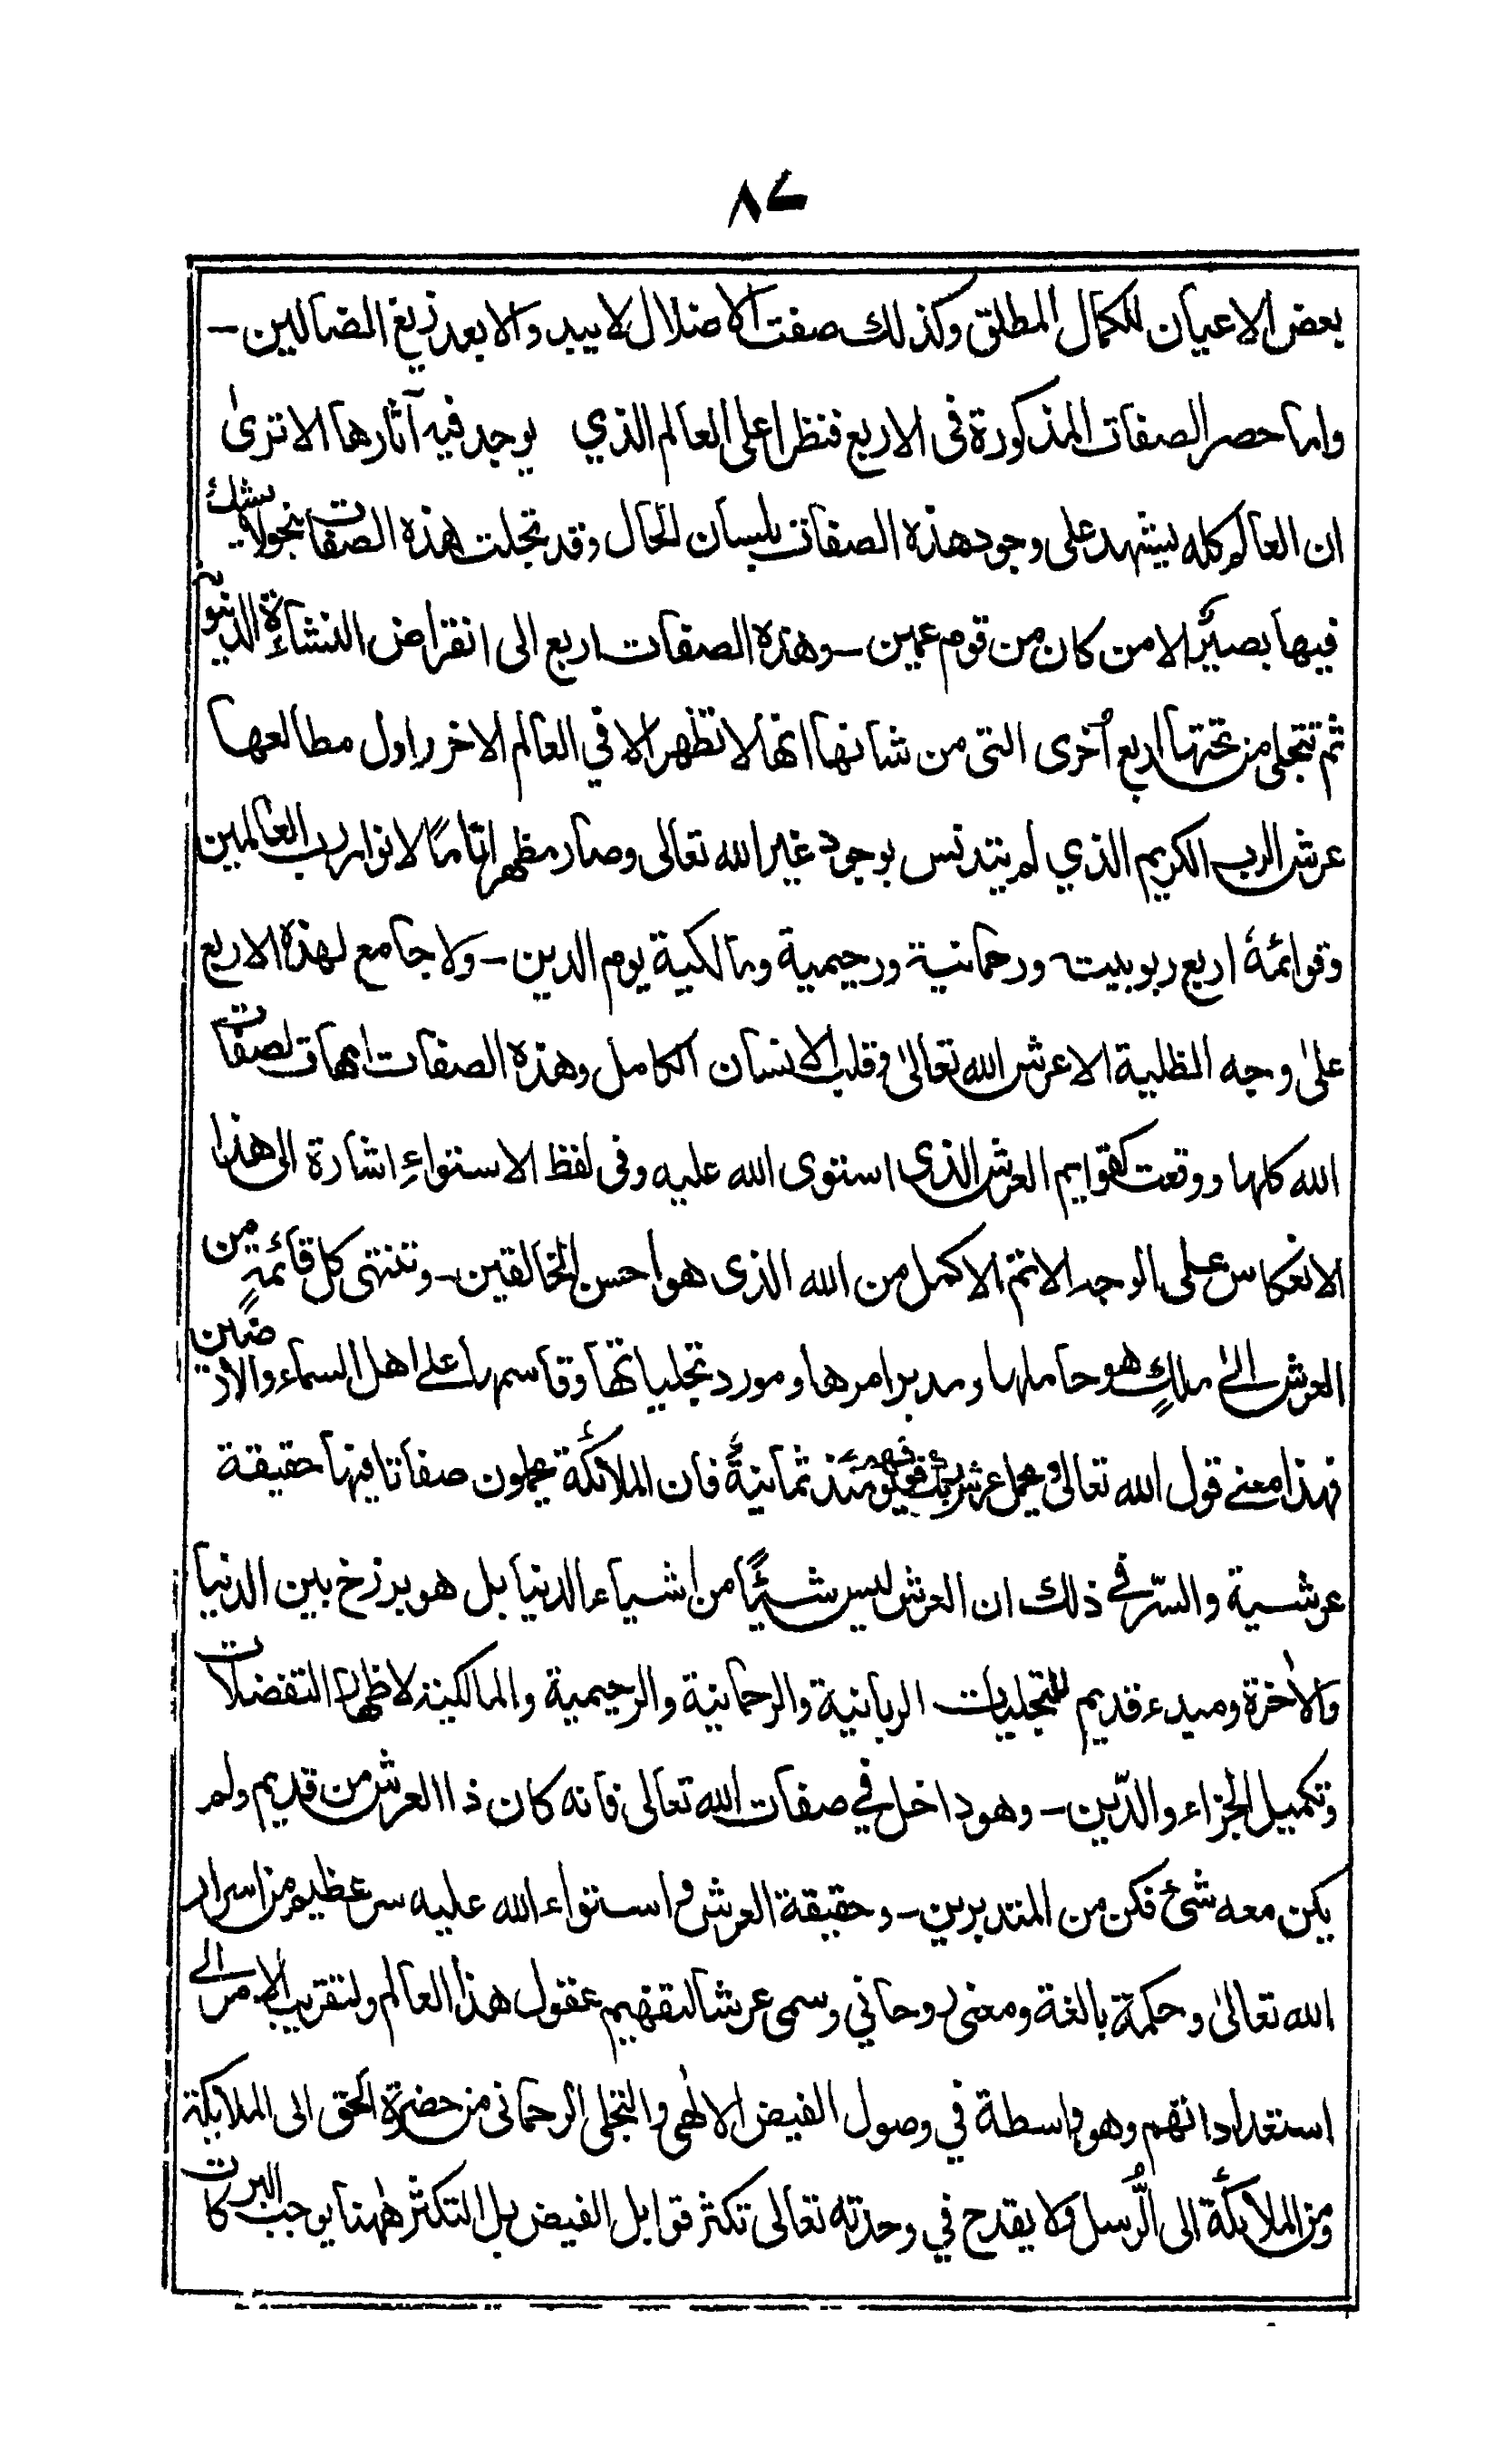 ٨٧
بعض الاعيان للكمال المطلق وكذلك صفت الاضلال لا يبد والا بعد زيغ الضالين-
واما حصر الصفات المذكورة فى الاربع فنظرا على العالم الذي يوجد فيه آثارها الا ترىٰ
ان العالم كله يشهد على وجود هذه الصفات بلسان الحال وقد تجلت هذه الصفات بنحو لا يشك
فيها بصيرٌ الا من كان من قوم عمين-وهذه الصفات اربع الى انقراض النشاءة الدنيوية
ثم تتجلى من تحتها اربع اُخرى التى من شانها انها لا تظهر الا في العالم الاخر واول مطالعها
عرش الرب الكريم الذي لم يتدنس بوجود غير الله تعالى وصار مظهرا تامًا لانوار رب العالمين
وقوائمهٗ اربع ربوبيت ورحمانية ورحيمية ومالكية يوم الدين-ولا جامع لهذه الاربع
علىٰ وجه الظلية الا عرش الله تعالىٰ وقلب الانسان الكامل وهذه الصفات امهات لصفات
الله كلها ووقعت كقوايم العرش الذى استوى الله عليه وفى لفظ الاستواءِ اشارة الى هذا
الانعكاس على الوجه الاتم الاكمل من الله الذى هو احسن الخالقين-وتنتهى كل قائمةٍ من
العرش الىٰ ملكٍ هو حاملها ومدبر امرها ومورد تجلياتها وقاسمها على اهل السماء والارضين
فهذا معنے قول الله تعالىٰ ويحمل عرش ربك فوقهم يومئذ ثمانيةٌ فان الملائكة يحملون صفاتا فيها حقيقة
عرشية والسّر في ذلك ان العرش ليس شيئًا من اشياء الدنيا بل هو برزخ بين الدنيا
والاٰخرة ومبدء قديم للتجليات الربانية والرحمانية والرحيمية والمالكية لاظهار التفضلات
وتكميل الجزاء والدّين-وهو داخل في صفات الله تعالى فانه كان ذا العرش من قديم ولم
يكن معه شئ فكن من المتدبرين-وحقيقة العرش واستواء الله عليه سر عظيم من اسرار
الله تعالىٰ وحكمة بالغة ومعنى روحاني وسمى عرشا لتفهيم عقول هذا العالم ولتقريب الامر الى
استعداداتهم وهو واسطة في وصول الفيض الالٰهى والتجلى الرحمانى من حضرة الحق الى الملائكة
ومن الملائكة الى الرُّسل ولا يقدح في وحدته تعالى تكثر قوابل الفيض بل التكثر هٰهنا يوجب البركات